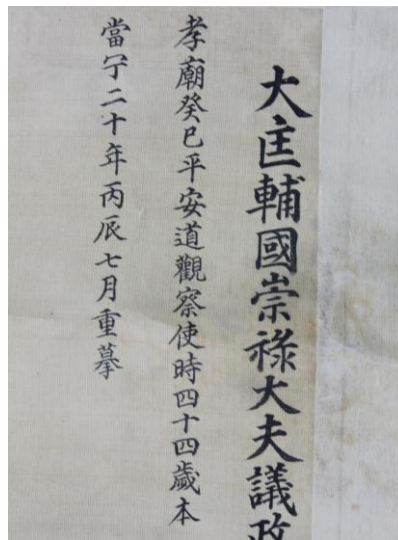 大匡輔國崇祿大夫議政
孝廟癸巳平安道觀察使時四十四歲本
當宁二十年丙辰七月重摹